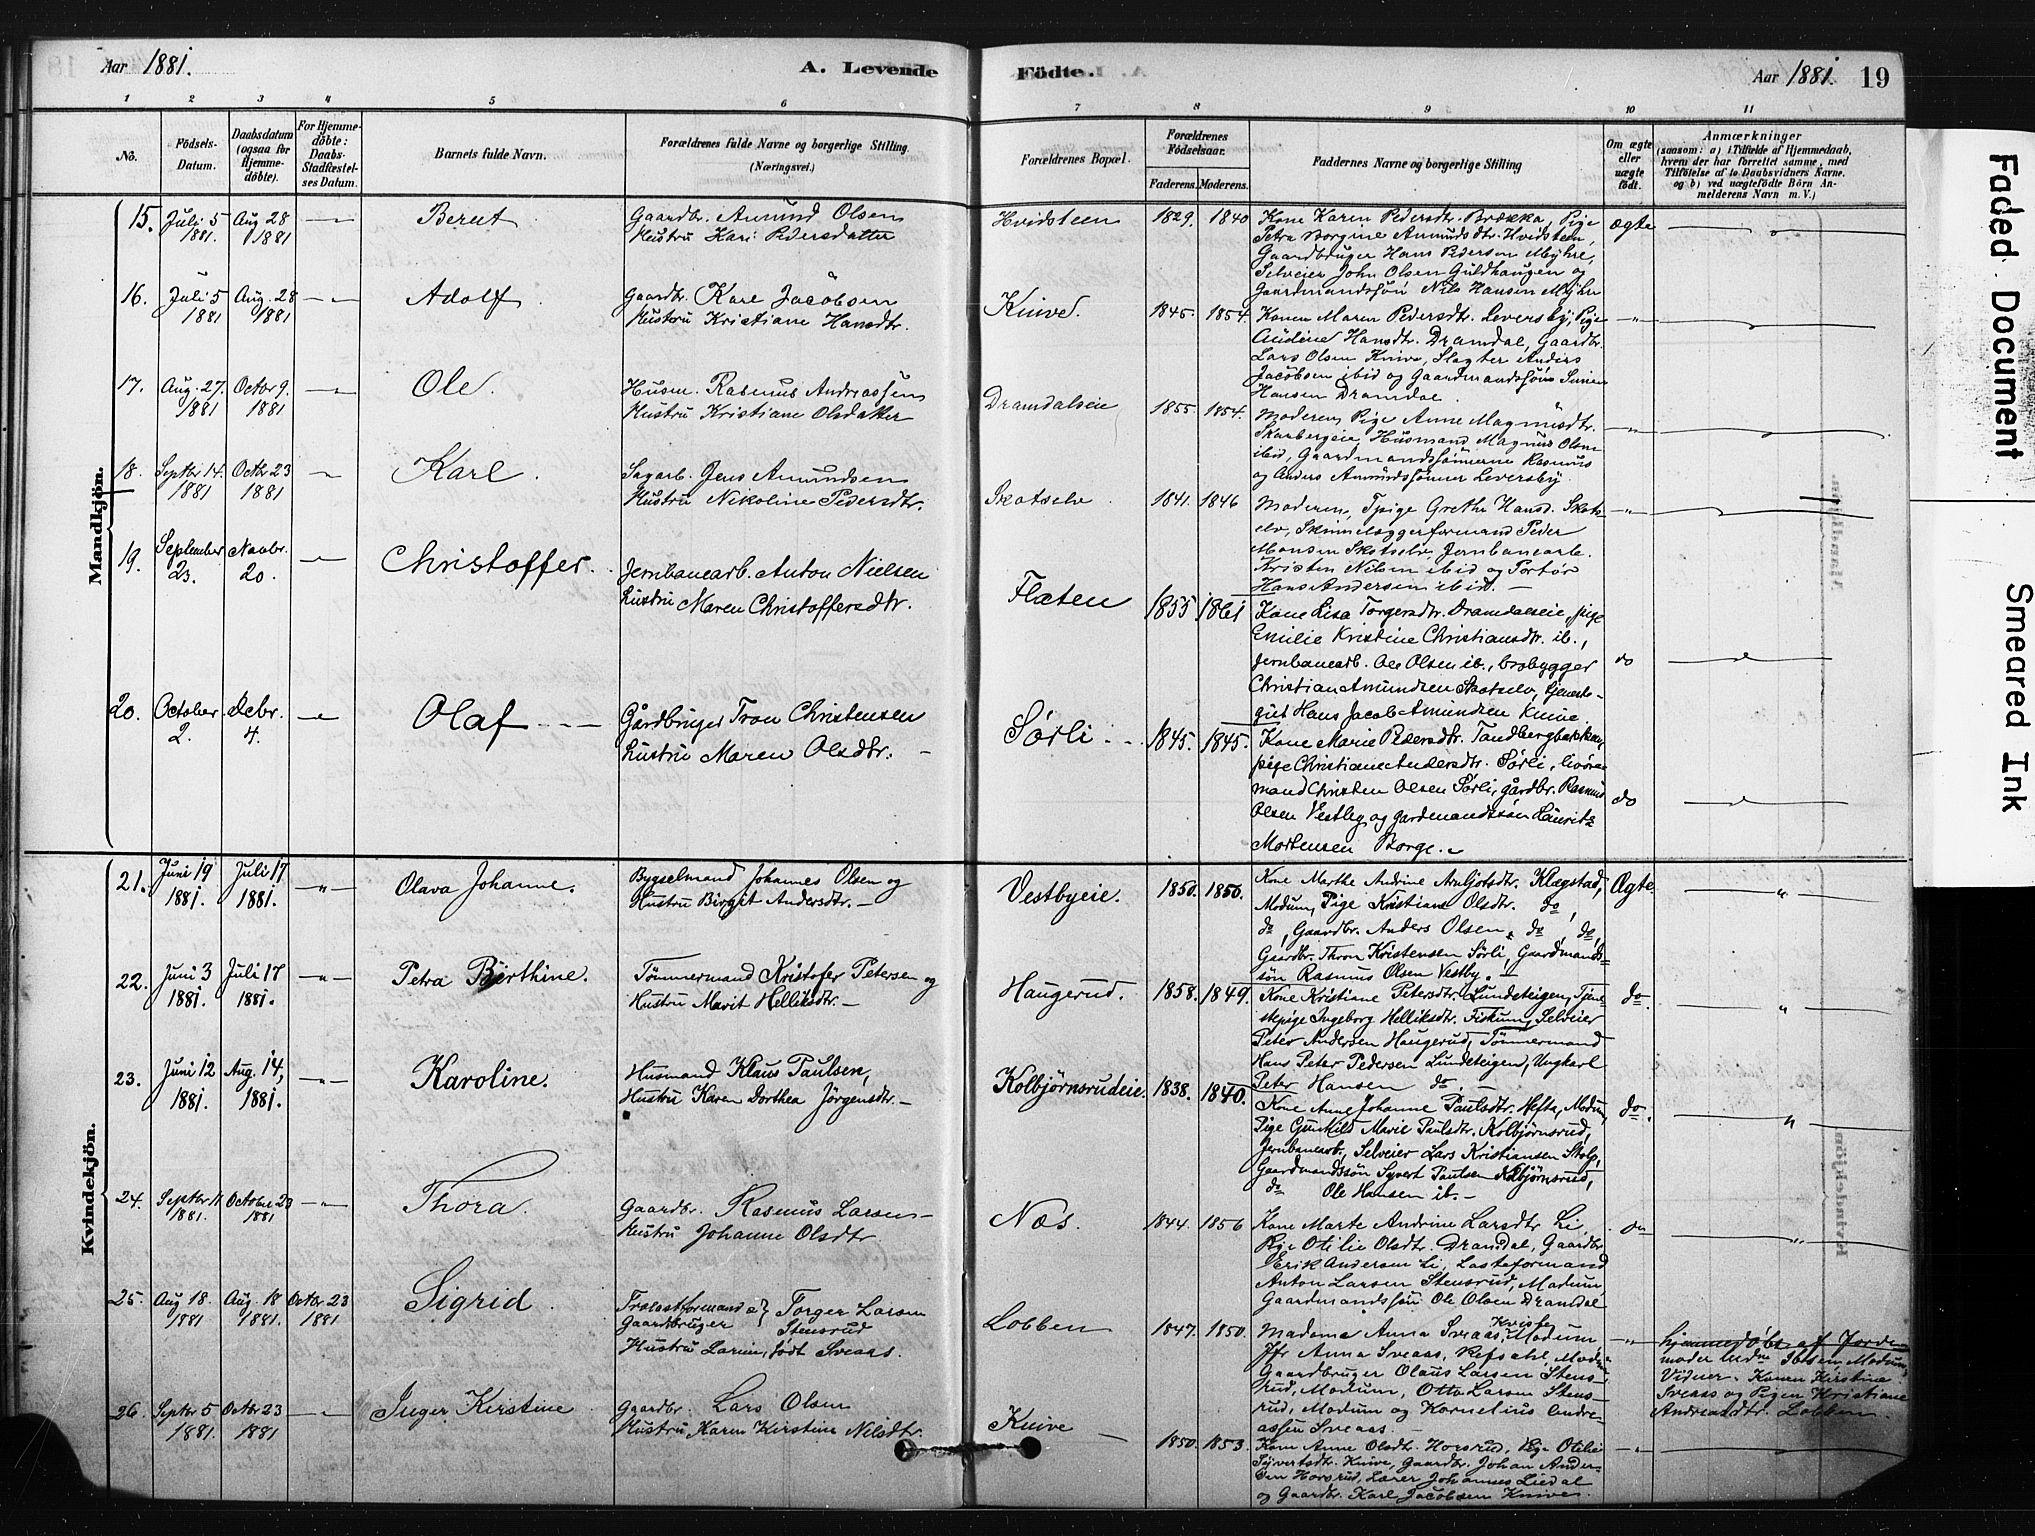 Aar 1881.
A. Levende
Födte.
Aar 1881.
19
1 2 3 4 5 6 7 8 9 10 11
No.
Födsels-Datum.
Daabsdatum (ogsaa for Hjemme-döbte).
For Hjemme-döbte: Daabs-Stadfæstel-ses Datum.
Barnets fulde Navn.
Forældrenes fulde Navne og borgerlige Stilling. (Næringsvei.)
Forældrenes Bopæl.
Forældrenes Födselsaar.
Faderens. Moderens.
Faddernes Navne og borgerlige Stilling
Om ægte eller uægte födt.
Anmærkninger
(saasom: a) i Tilfælde af Hjemmedaab,
hvem der har forrettet samme, med
Tilföielse af to Daabsvidners Navne.
og b) ved uægtefödte Börn An-
melderens Navn m. V.)
Mandkjön.
15. Juli 5 1881. Aug 28 1881 Berut
Gaardbr. Amund Olsen
Hustru Kari Pedersdatter
Hvidsteen 1829. 1840
Kone Karen Pedersdtr. Brække, Pige
Petra Borgine Amundsdtr. Hvidsteen,
Gaardbruger Hans Pedersen Myhre,
Selveier John Olsen Guldhaugen og
Gaardmandssøn Nils Hansen Myhre
ægte
16. Juli 5 1881 Aug. 28 1881 Adolf
Gaardbr. Karl Jacobsen
Hustru Kristiane Hansdtr.
Knive. 1845. 1854.
Konen Maren Pedersdtr. Leversby, Pige
Audine Hansdtr. Dramdal, Gaardbr.
Lars Olsen Knive, Slagter Anders
Jacobsen ibid og Gaardmandssøn Simen
Hansen Dramdal.
17. Aug. 27. 1881 Octbr 9. 1881 Ole.
Husm. Rasmus Andreassen
Hustru Kristiane Olsdatter
Dramdalseie 1855. 1854.
Moderen, Pige Anne Magnusdtr.
Skarbergeie, Husmand Magnus Olsen
ibid, Gaardmandssønnerne Rasmus
og Anders Amundssønner Leversby.
18. Septbr 14. 1881 Octbr 23 1881 Karl.
Sagarb. Jens Amundsen
Hustru Nikoline Pedersdtr.
Skotselv 1841. 1846
Moderen, Tjpige Grethe Hansd. Skots-
elv, Skinnelæggerformand Peder
Monsen Skotselv, Jernbanearb.
Kristen Nilsen ibid og Portør
Hans Andersen ibid. —
19. September 23. Novbr. 20. Christoffer.
Jernbanearb. Anton Nielsen
Hustru Maren Christoffersdtr.
Flaten 1855 1861
Kone Lisa Torgersdtr. Dramdalseie, pige
Emilie Kristine Christiansdtr. ib.,
Jernbanearb. Ole Olsen ib., brobygger
Christian Amundsen Skotselv, tjeneste-
gut Hans Jacob Amundsen Knive.
do
20. October 2. Decbr. 4. Olaf
Gårdbruger Tron Christensen
Hustru Maren Olsdtr. —
Sørli 1845. 1845.
Kone Marie Pedersdtr. Tandbergbakken,
pige Christiane Andersdtr. Sørli, livøre-
mand Christen Olsen Sørli, gårdbr. Rasmus
Olsen Vestby og gardmandssøn Lauritz
Mortensen Borge.
do
Kvindekjön.
21. Juni 19 1881. Juli 17 1881. Olava Johanne.
Bygselmand Johannes Olsen og
Hustru Birgit Andersdtr. —
Vestbyeie. 1850. 1850.
Kone Marthe Andrine Arnljotsdtr. Klægstad,
Modum, Pige Kristiane Olsdtr. do,
do, Gaardbr. Anders Olsen, do, do,
Gaardbr. Thron Kristensen Sørli, Gaardmands-
søn Rasmus Olsen Vestby. —
Ægte
22. Juni 3 1881. Juli 17 1881. Petra Birthine.
Tømmermand Kristofer Petersen og
Hustru Marit Helliksdtr. —
Haugerud. 1858. 1849.
Kone Kristiane Petersdtr. Lundeteigen, Tjene-
stepige Ingeborg Helliksdtr. Fiskum, Selveier
Peter Andersen Haugerud, Tømmermand
Hans Peter Pedersen Lundeteigen, Ungkarl
Peter Hansen do. —
do.
23. Juni 12 1881. Aug. 14, 1881. Karoline.
Husmand Klaus Paulsen,
Hustru Karen Dorthea Jörgensdtr. —
Kolbjørnsrudeie. 1838. 1840.
Kone Anne Johanne Paulsdtr. Hefte, Modum,
Pige Gunhild Marie Paulsdtr. Kolbjørnsrud,
Jernbanearb., Selveier Lars Kristiansen Stolp,
Gaardmandssön Syvert Paulsen Kolbjørnsrud,
do Ole Hansen ib. —
do.
24. Septbr 11 1881. October 23 1881 Thora.
Gaardbr. Rasmus Larsen
Hustru Johanne Olsdtr
Næs. 1844. 1856
Kone Marte Andrine Larsdtr. Li,
Pige Otilie Olsdtr. Dramdal, Gaardbr.
Erik Andersen Li, Lasteformand
Anton Larsen Stensrud, Modum,
Gaardmandssøn Ole Olsen Dramdal
do
25. Aug 18. 1881 Aug. 18 1881. Octbr. 23 1881 Sigrid.
Trælastformand & Gaardbruger } Torger Larsen Stensrud
Hustru Larine, født Sveaas.
Lobben 1847. 1850.
Madame Anna Sveaas, Modum
Jfr Anna Sveaas, Refsahl, Modum,
Gaardbruger Olaus Larsen Stens-
rud, Modum, Otto Larsen Stens-
rud, Modum og Kornelius Andre-
assen Sveaas. —
hjemmedøbt af Jorde-
moder Ibsen, Modum,
Vidner. Konen Kirstine
Sveaas og Pigen Kristiane
Andreasdtr. Lobben.
26. Septbr 5 1881. Octbr 23 1881 Inger Kirstine
Gaardbr. Lars Olsen
Hustru Karen Kirstine Nilsdtr.
Knive 1850. 1853.
Kone Anne Olsdtr. Horsrud, Pige Otilie
Syvertsdtr. Knive, Gaardbr. Johan Ander-
sen Horsrud, Lærer Johannes Liedal
og Gaardbr. Karl Jacobsen Knive.
Faded Document
Smeared Ink